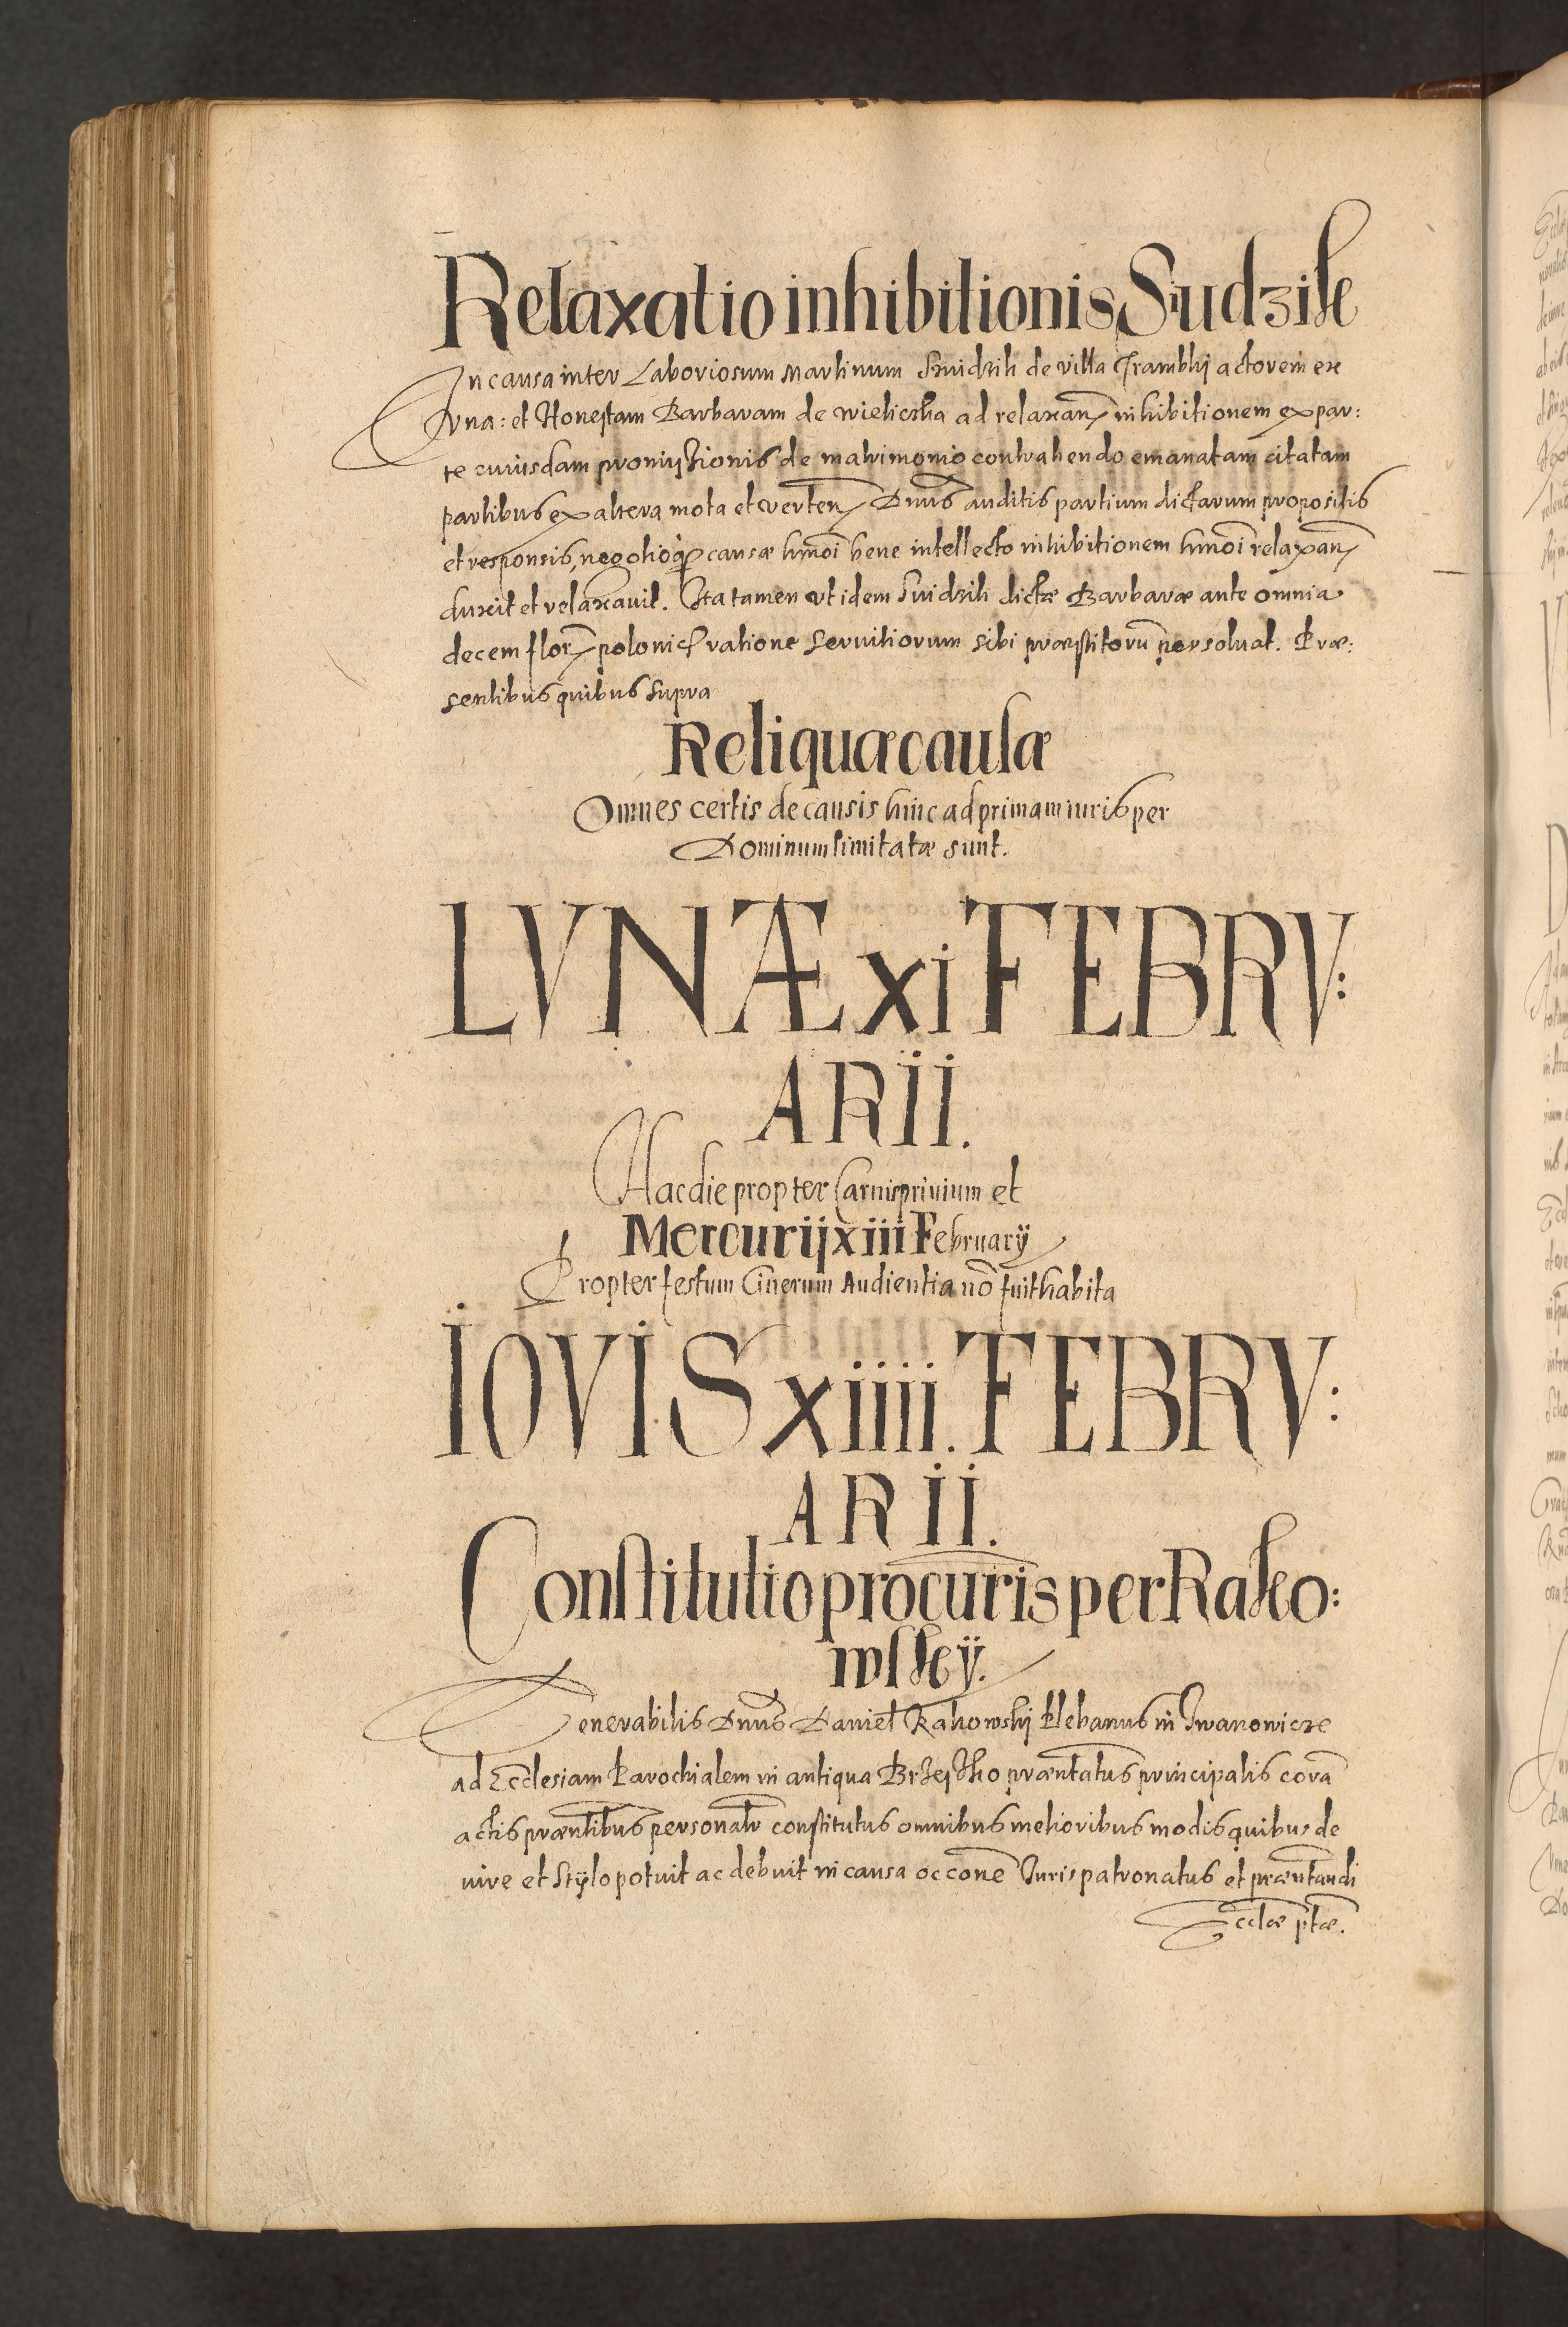 Relaxatio inhibitionis Sudzik
In causa inter Laboriosum Martinum Smidzik de villa Grambkij actorem ex
vna: et Honestam Barbaram de Wieliczka ad relaxan inhibitionem ex par:
te cuiusdam promissionis de matrimonio contrahendo emanatam citatam
partibus ex altera mota et verten Dnus auditis partium dictarum propositis
et responsis, negotioq causæ hmoi bene intellecto inhibitionem hmoi relaxan
duxit et relaxauit. Ita tamen vt idem Suidzik dictæ Barbaræ ante omnia
decem flor polonic ratione seruitiorum sibi præstitorū persoluat. Præ:
sentibus quibus supra
Reliquæ causæ
Omnes certis de causis hinc ad primam iuris per
Dominum limitatæ sunt.
LVNÆ xi FEBRV:
ARII.
Hac die propter Carnispriuium et
Mercurij xiii February
Propter festum Cinerum Audientia nō fuit habita
IOVIS xiiii. FEBRV:
ARII.
Constitutio procuris per Rako:
wskÿ.
Venerabilis Dnus Daniel Rakowskj Plebanus in Iwanowicze
ad Ecclesiam Parochialem in antiqua Brzesko præntatus principalis corā
actis præntibus personalr constitutus omnibus melioribus modis quibus de
iure et stÿlo potuit ac debuit in causa occone Iurispatronatus et præntandi
Ecclæ ptæ.